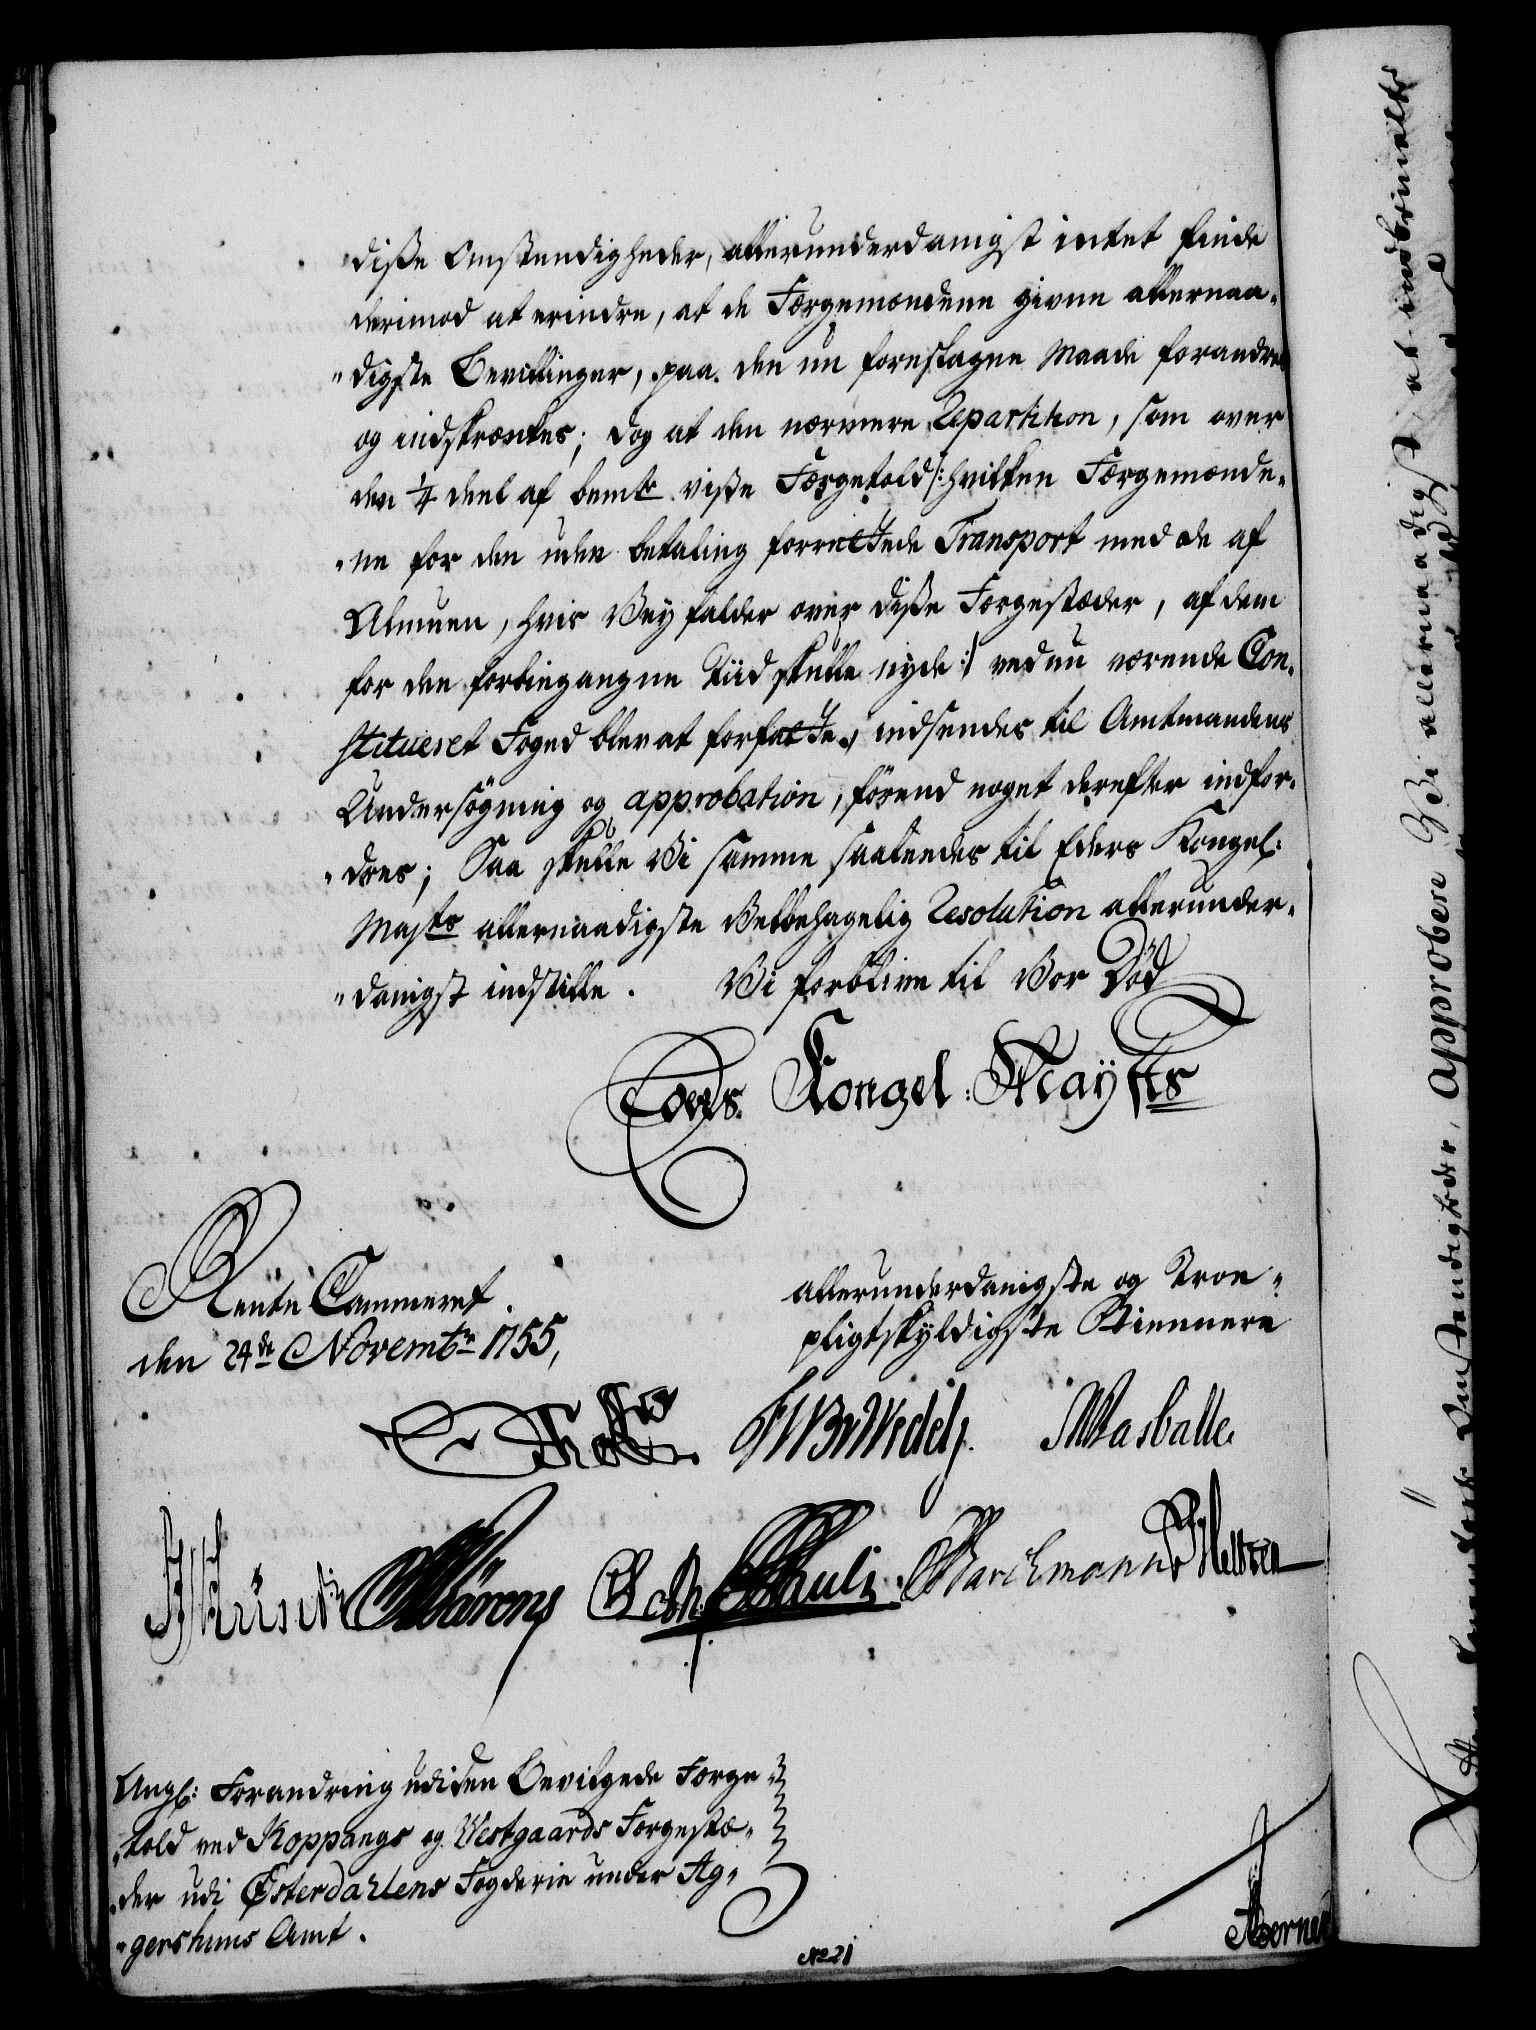 diße Omstendigheder, allerunderdanigst intet finde
derimod at erindre, at de Færgemændene givne allernaa-
"digste Bevillinger, paa den nu foreslagne Maade forandres
og indskrænkes; dog at den nærmere Repartition, som over
den 1/4 deel af bemte viße Færgetold /: hvilken Færgemænde-
"ne for den uden betaling forrettede Transport med de af
Almuen, hvis Vey falder over diße Færgestæder, af dem
for den forbiegangne Tiid skulle nyde :/ ved nu værende Con-
stitueret Foged blev at forfatte, indsendes til Amtmandens
Undersögning og approbation, förend noget derefter indfor-
"dres; Saa skulle Vi samme saaledes til Eders Kongel:
Majts allernaadigste Velbehagelig Resolution allerunder-
"danigst indstille. Vi forblive til Vor Död
Eders Kongel: Mayts
Rente Cammeret.
den 24de Novembr 1755,
allerunderdanigste og Troe-
pligtskyldigste Tiennere
Holst
Pauli
Barchmann
Angl: Forandring udi den Bevilgede Færge-
"told ved Koppangs og Westgaards Færgestæ-
"der udi Österdahlens Fogderie under Ag-
"gershuus Amt.
No 21
approbere Vi allernaadigst, at indbemelte